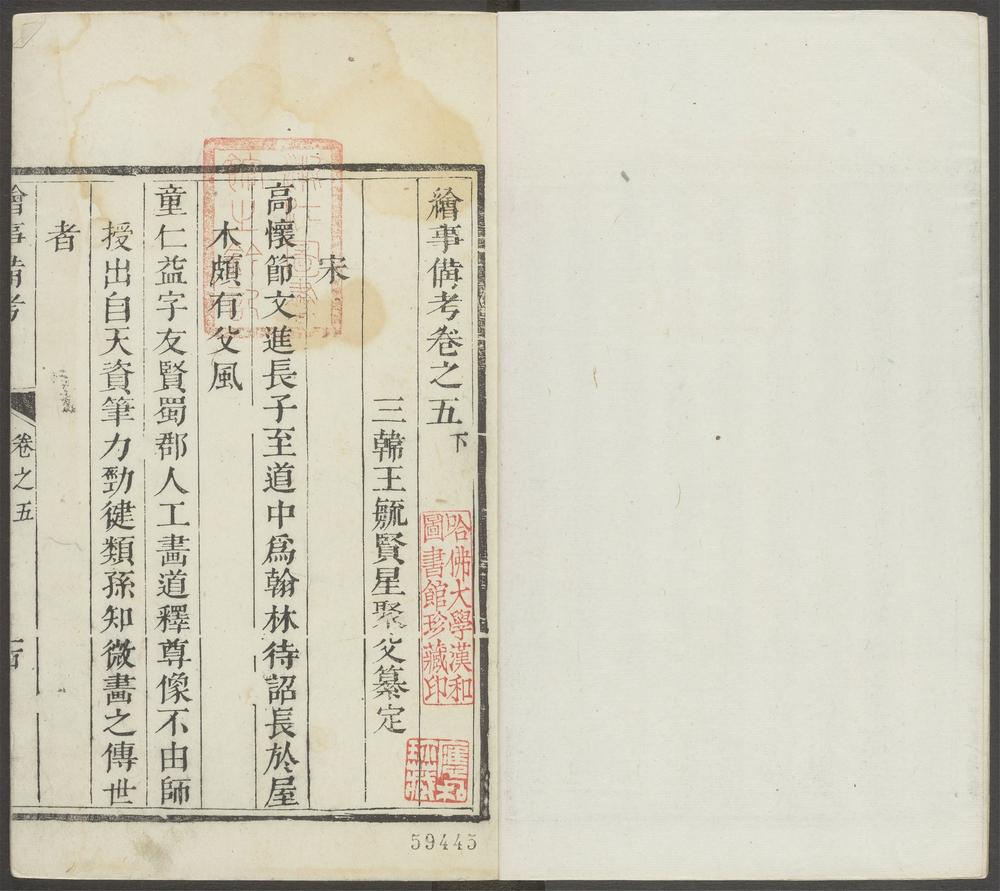 繪事備考卷之五下
三韓王毓賢星聚父纂定
宋
高懷節文進長子至道中爲翰林待詔長於屋
木頗有父風
童仁益字友賢蜀郡人工畫道釋尊像不由師
授出自天資筆力勁健類孫知微畫之傳世
者
繪事備考
卷之五
哈佛大學漢和
圖書館珍藏印
59445